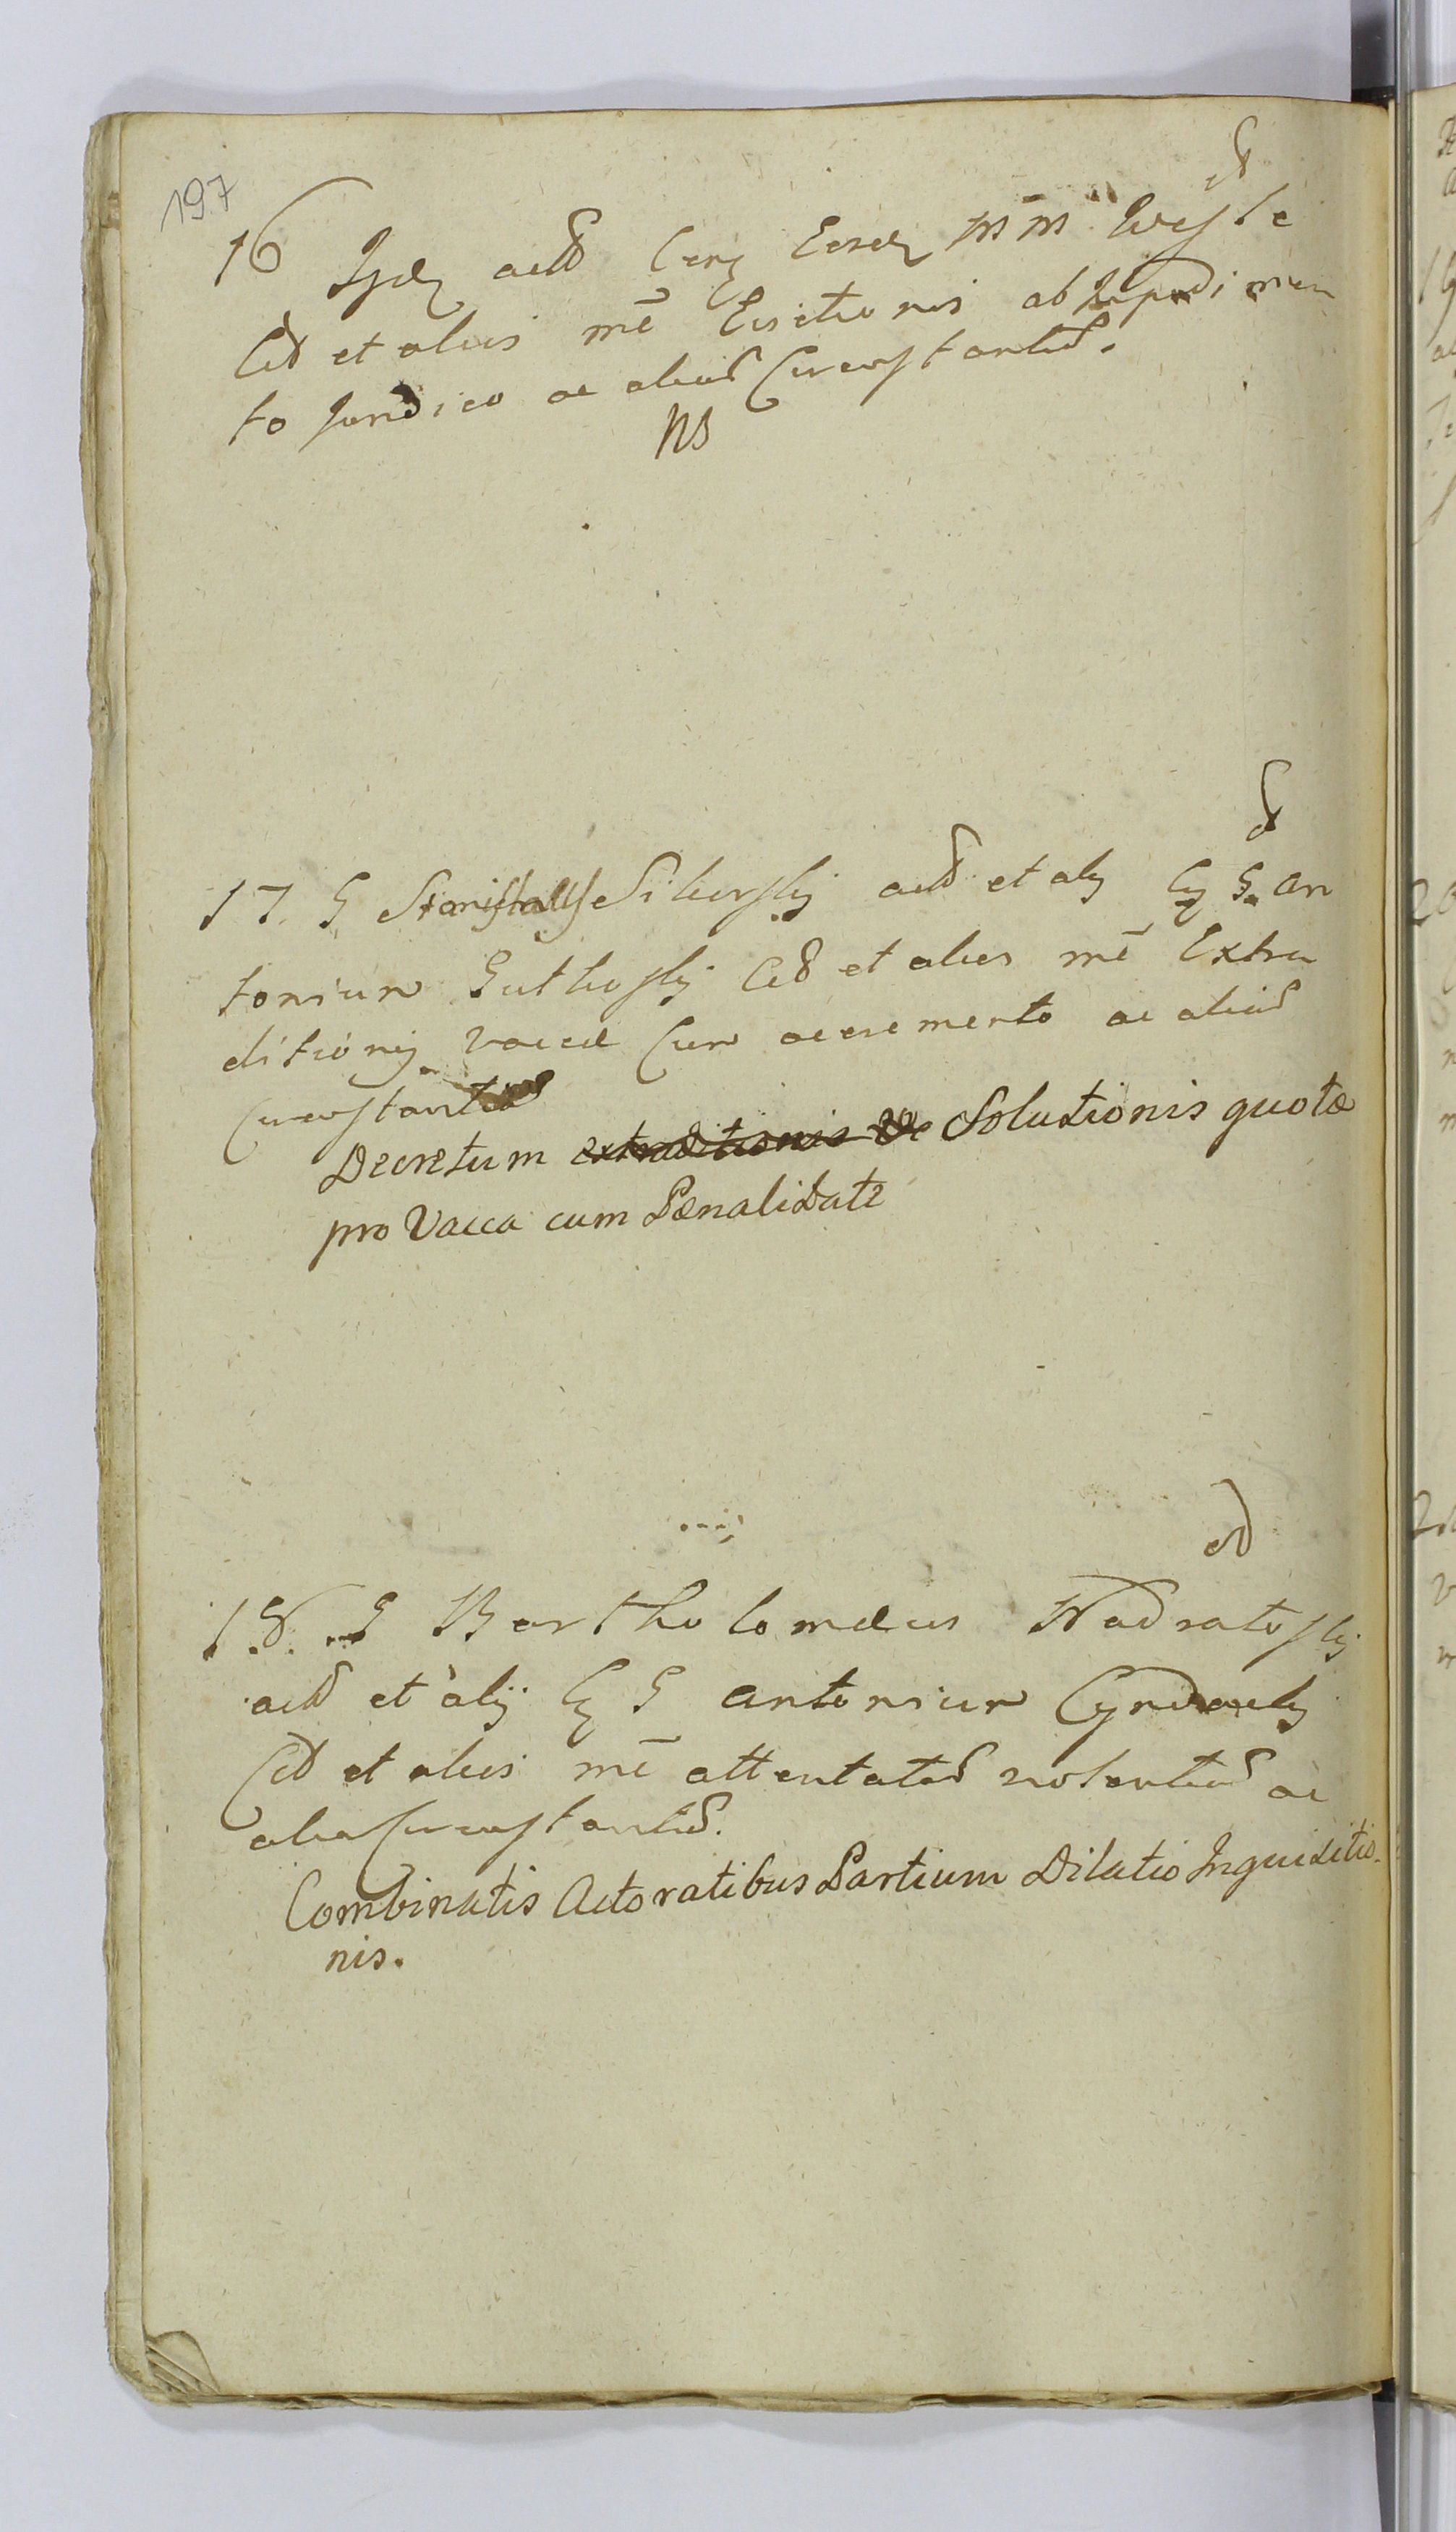 197
16 Isdē actō
Citō et alios mē Evictionis ab Impedimen
to Juridico ac aliis Circumstantiis.
NS
17. G Stanislaus Sikorskij actō et alij G. An
tonium Gutkoskij Citō et alios mē Extra
ditionis vaccæ Cum accremento ac aliis
Circumstantiis
Decretum extraditionis Solutionis quotæ
pro Vacca cum Pænalitate
18. G Bartholomæus Nadratoskij
actō et alij G Antonium
Citō et alios mē attentatas violentias ac
alias Circumstantias.
Combinatis Actoratibus Partium Dilatio Inquisitio
nis.